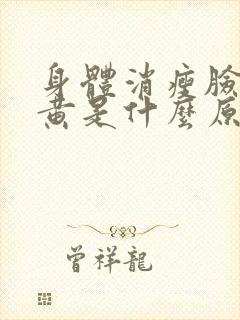 身體消瘦臉
黃是什麼原
曾祥龍